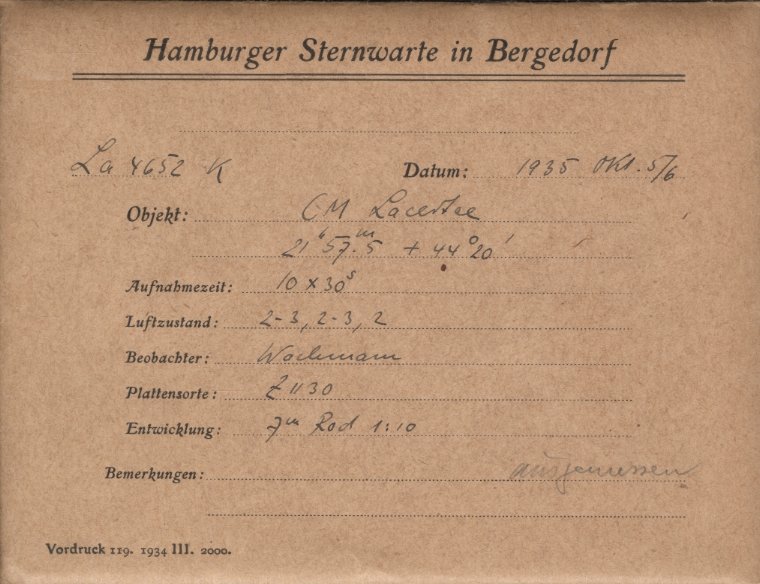 Hamburger Sternwarte in Bergedorf
La 4652 K Datum: 1935 Okt. 5/6
Objekt: CM Lacertae
21ʰ 57ᵐ.5 + 44° 20′
Aufnahmezeit: 10 x 30ˢ
Luftzustand: 2-3, 2-3, 2
Beobachter: Wachmann
Plattensorte: Z 1130
Entwicklung: 7ᵐ Rod 1:10
Bemerkungen: ausgemessen
Vordruck 119. 1934 III. 2000.